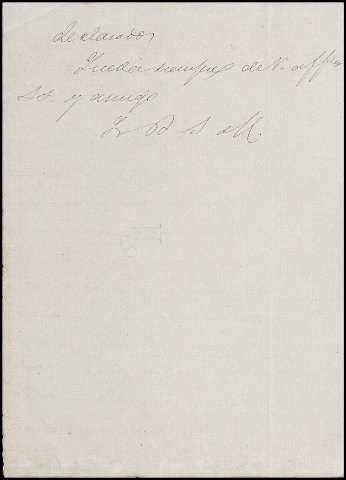 declarados
Queda siempre de V. affmo
St. y amigo
Q B S M.